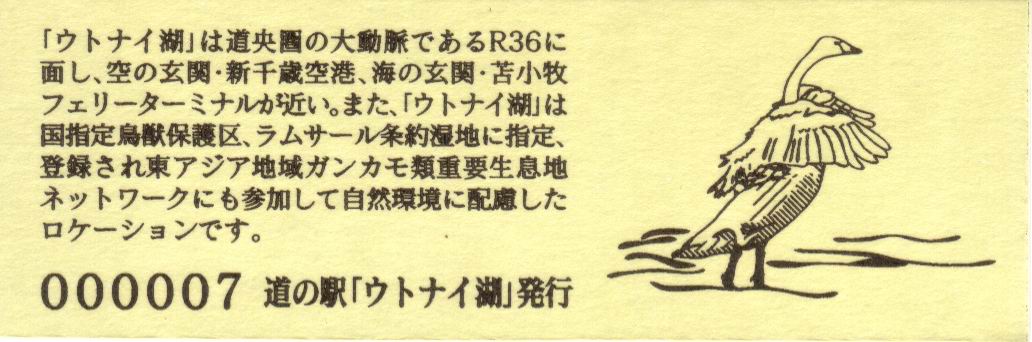 「ウトナイ湖」は道央圏の大動脈であるR36に
面し、空の玄関・新千歳空港、海の玄関・苫小牧
フェリーターミナルが近い。また、「ウトナイ湖」は
国指定鳥獣保護区、ラムサール条約湿地に指定、
登録され東アジア地域ガンカモ類重要生息地
ネットワークにも参加して自然環境に配慮した
ロケーションです。
000007 道の駅「ウトナイ湖」発行